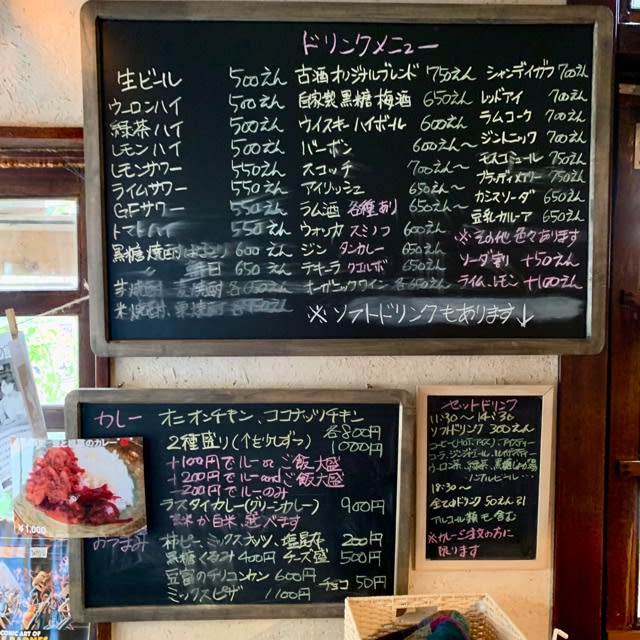 ドリンクメニュー
生ビール 500えん
ウーロンハイ 500えん
緑茶ハイ 500えん
レモンハイ 500えん
レモンサワー 550えん
ライムサワー 550えん
サワー 550えん
トマトハイ 550えん
黒糖焼酎 600えん
650えん
古酒オリジナルブレンド 750えん
自家製黒糖梅酒 650えん
ウイスキーハイボール 600えん
バーボン 600えん〜
スコッチ 700えん〜
アイリッシュ 650えん〜
ラム酒 各種あり 650えん〜
ウォッカ スミノフ 600えん
ジン タンカレー 650えん
テキーラ クエルボ 650えん
オーガニックワイン 各650えん
シャンディガフ 700えん
レッドアイ 700えん
ラムコーク 700えん
ジントニック 700えん
モスコミュール 750えん
ブラッディメアリー 750えん
カシスソーダ 650えん
豆乳カルーア 650えん
※その他色々あります
ソーダ割り +50えん
ライム、レモン +100えん
※ソフトドリンクもあります↓
カレー オニオンチキン、ココナッツチキン
各800円
2種盛り 1000円
+100円でルーorご飯大盛
+200円でルーandご飯大盛
-200円でルーのみ
ラスタイカレー(グリーンカレー) 900円
玄米か白米、選べます
おつまみ 柿ピー、ミックスナッツ、塩昆布 200円
黒糖くるみ 400円 チーズ盛 500円
豆富のチリコンカン 600円
チョコ 50円
ミックスピザ 1100円
セットドリンク
11:30〜14:30
ソフトドリンク 300えん
コーヒー(HotorICE)、アイスティー
コーラ、ジンジャエール
ウーロン茶、緑茶
ノンアルビール
18:30〜
全てのドリンク 50えん引
アルコール類も含む
※カレーご注文の方に
限ります
黒のカレー
¥1,000
COMIC ART OF